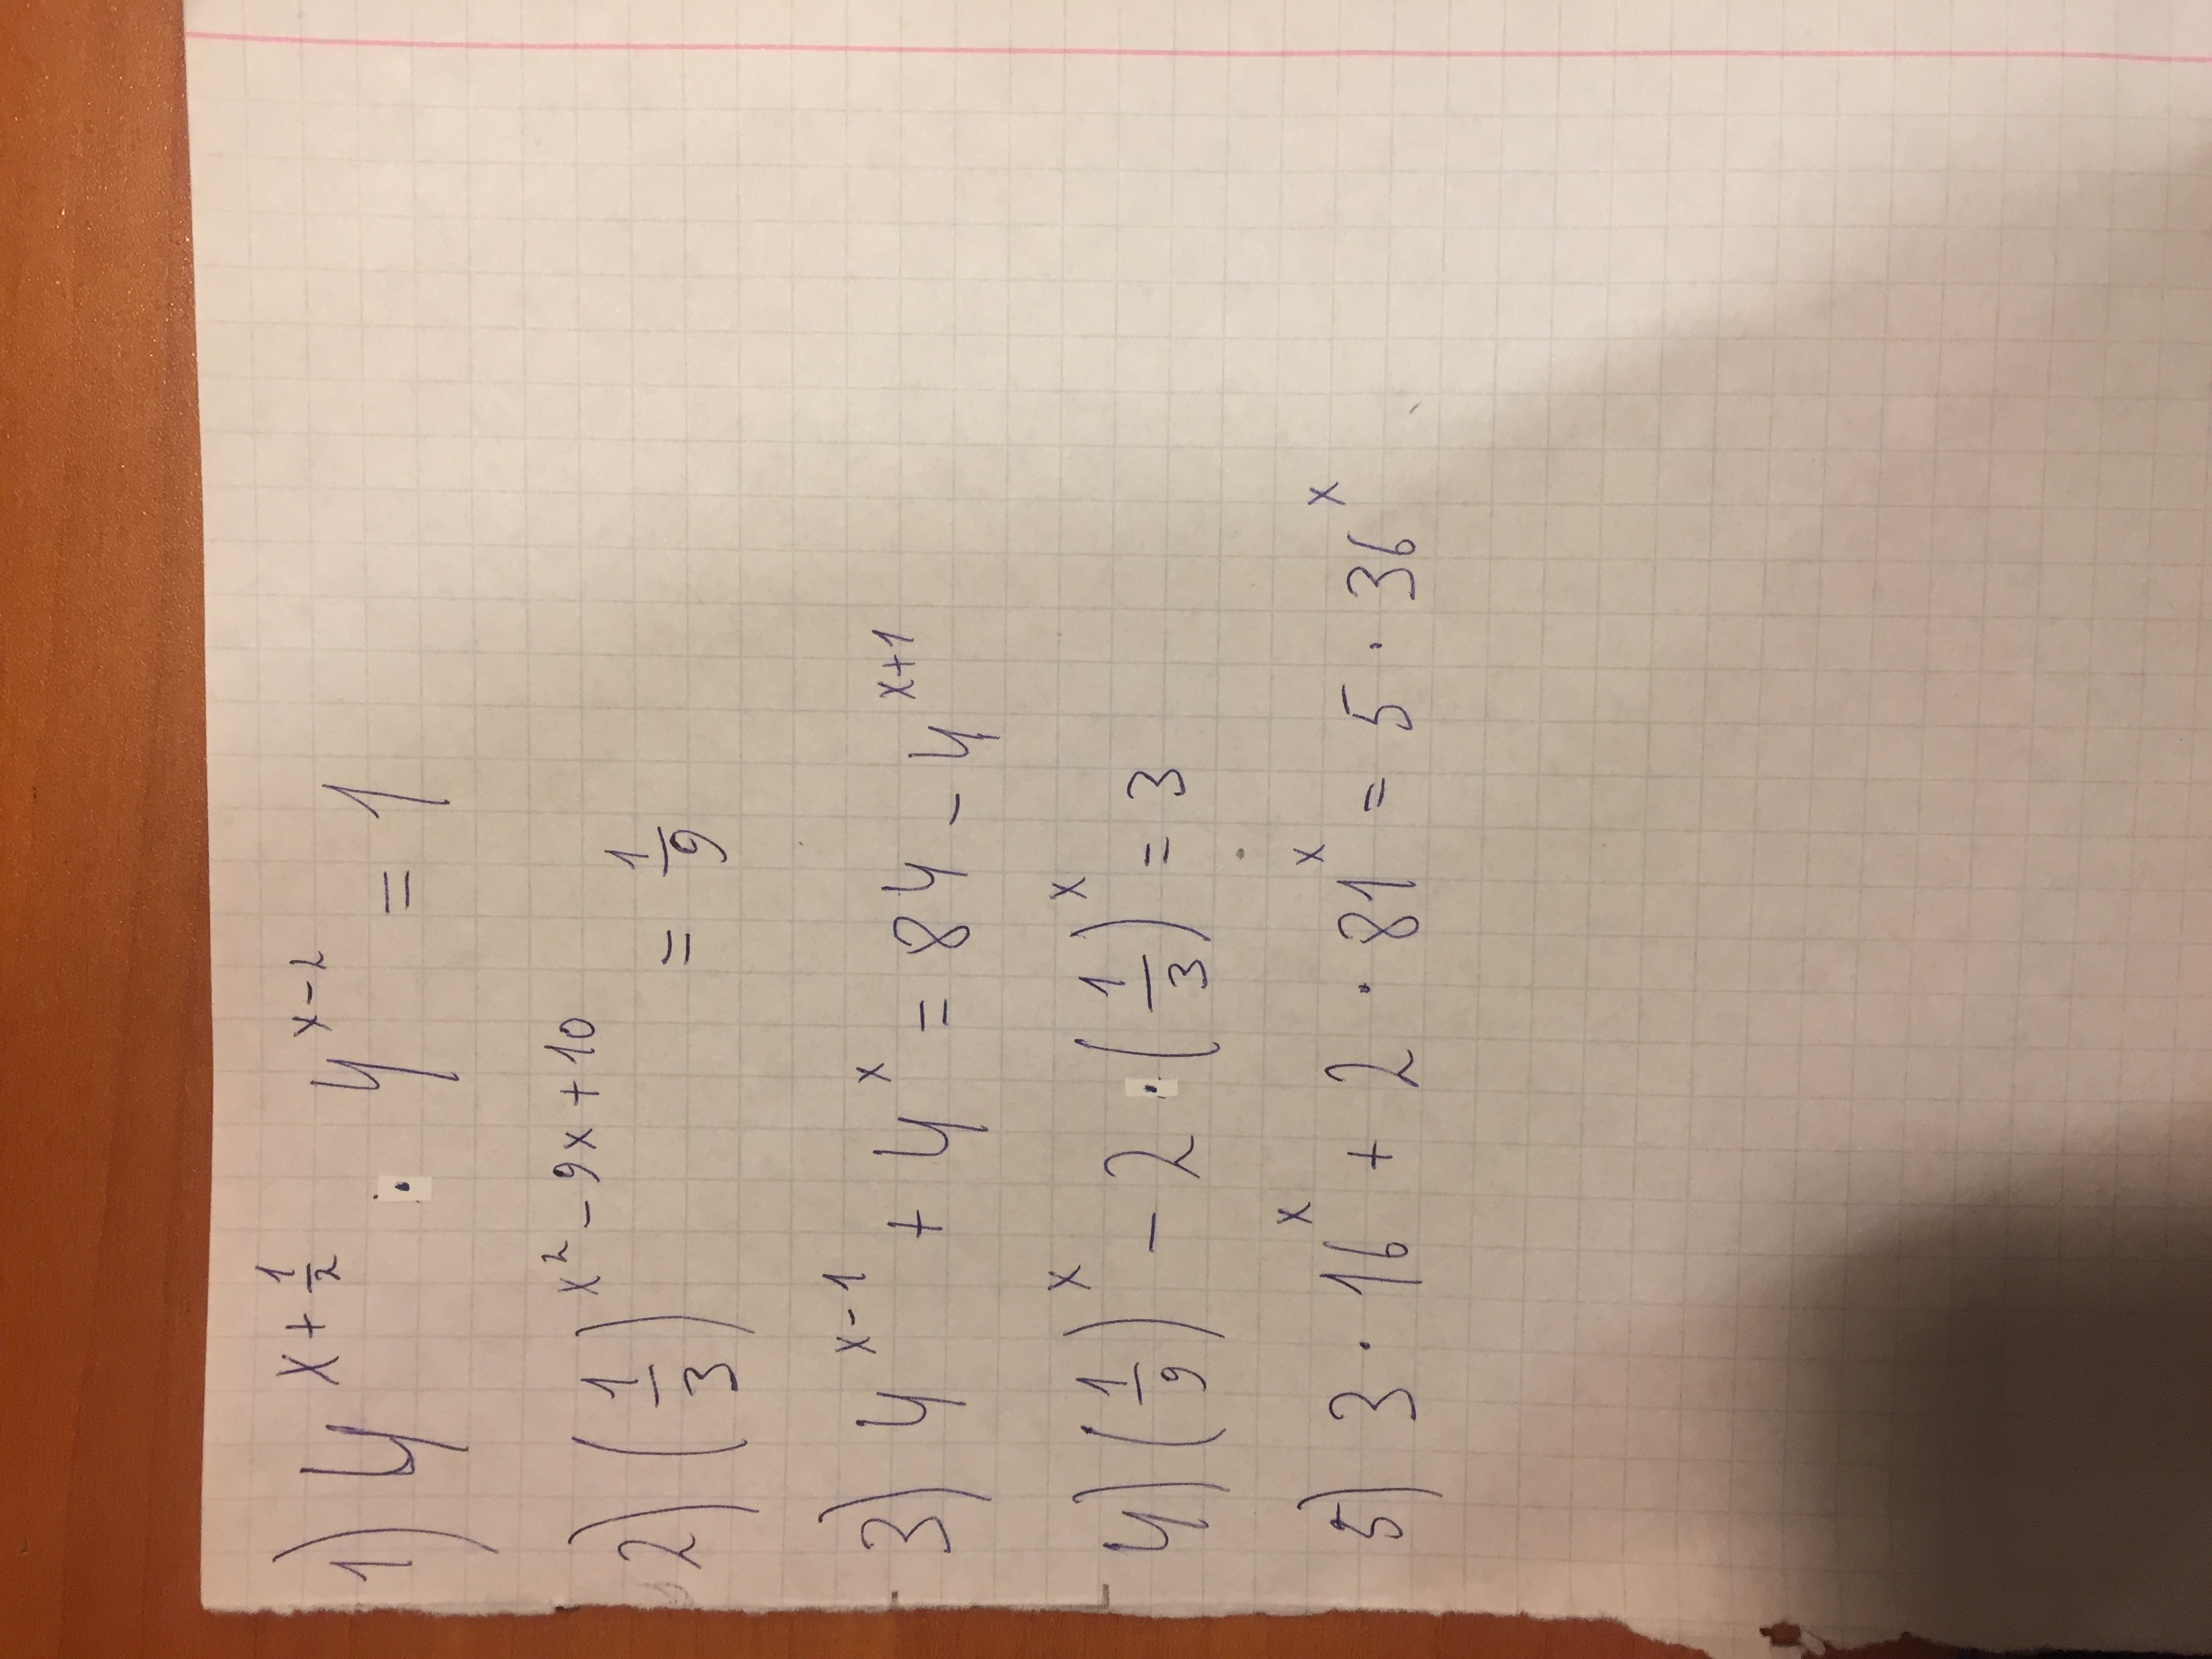 1) 4^{x+\frac{1}{2}} · 4^{x-2} = 1
2) (\frac{1}{3})^{x^2-9x+10} = \frac{1}{9}
3) 4^{x-1} + 4^x = 84 - 4^{x+1}
4) (\frac{1}{9})^x - 2 · (\frac{1}{3})^x = 3
5) 3 · 16^x + 2 · 81^x = 5 · 36^x